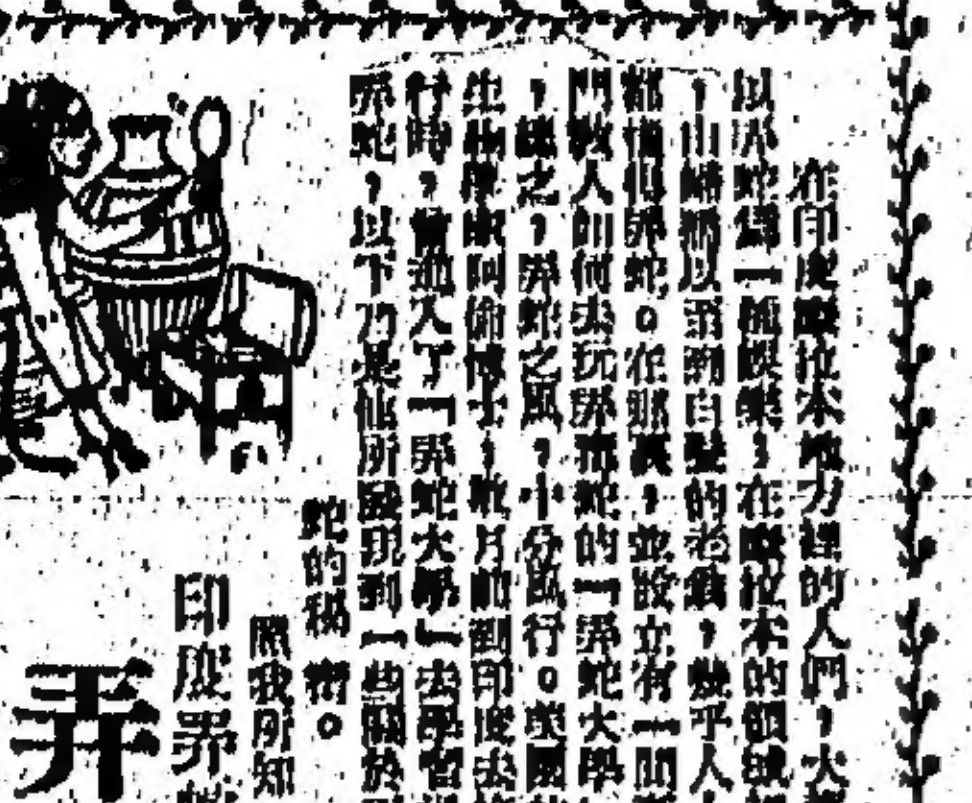 在印度拉本地方裡的人們，大
以弄蛇爲一種娛樂，在拉本的領域
，由以至兩白髮的老翁，幾乎人
都懂得弄蛇。在那裏，並設立有一間
門教人如何去玩弄毒蛇的「弄蛇大學
，之，弄蛇之風，十分風行。英國
生物學家阿博士，數月前到印度去
行時，曾進入了「弄蛇大學」去學習
弄蛇，以下乃是他所發現到一些關於
蛇的秘密。
照我所知
印度弄
弄